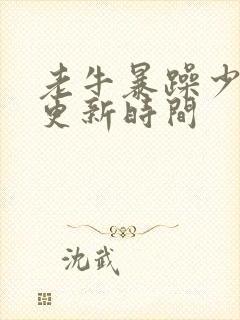 老牛暴躁少
更新時間
沈武